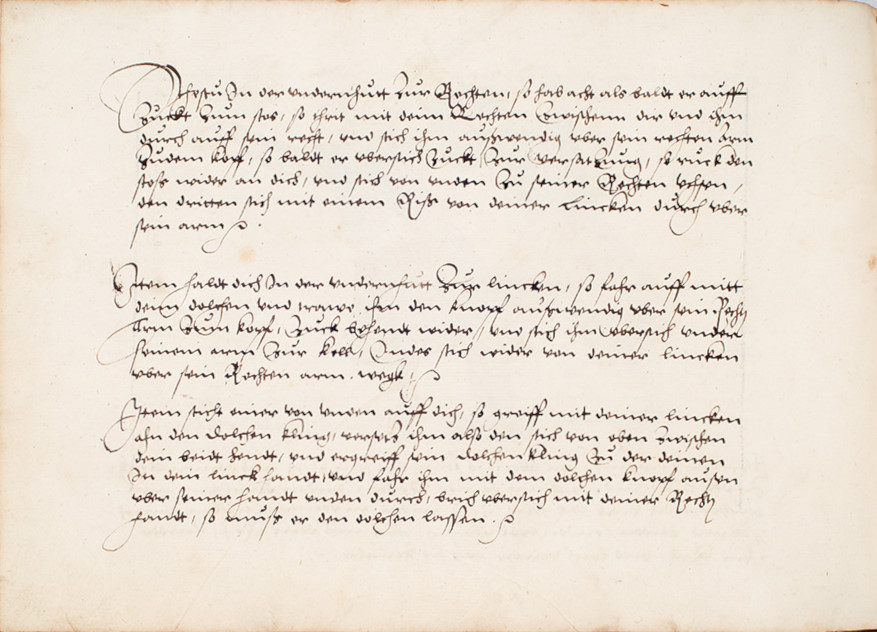 Ihestu In der undernhutt Zur Rechten, so hab acht als baldt er auff
Zuckt Zum stos, so thrit mit deim Rechten Zwischenn dir und ihm
durch auff sein recht, und stich ihm auswendig uber sein rechten arm
Zu dem kopf, so baldt er ubersich Zuckt Zur versatzung, so ruck den
stoss wider an dich, und stich von unden Zu seiner Rechten uchsen,
den dritten stich mit einem Riss von deiner Lincken durch uber
sein arm
Item haldt dich In der undernhutt Zur lincken, so fahr auff mitt
deim dolchen und trawe ihm den knopf auswendig uber sein Recht
Arm Zum kopf, Zuck behendt wider, und stich ihm ubersich under
seinem arm Zur Kele, Indes stich wider von deiner lincken
uber sein Rechten arm wegk,
Item sticht einer von unden auff dich, so greiff mit deiner lincken
ahn den dolchen kling, versetz ihm also den stich von oben Zwischen
dein beidt hendt, und ergreiff sein dolchen kling Zu der deinen
In dein linck handt, und fahr ihm mit dem dolchen knopf aussen
uber seiner handt unden durch, brich ubersich mit deiner Recht
handt, so muss er den dolchen lassen.